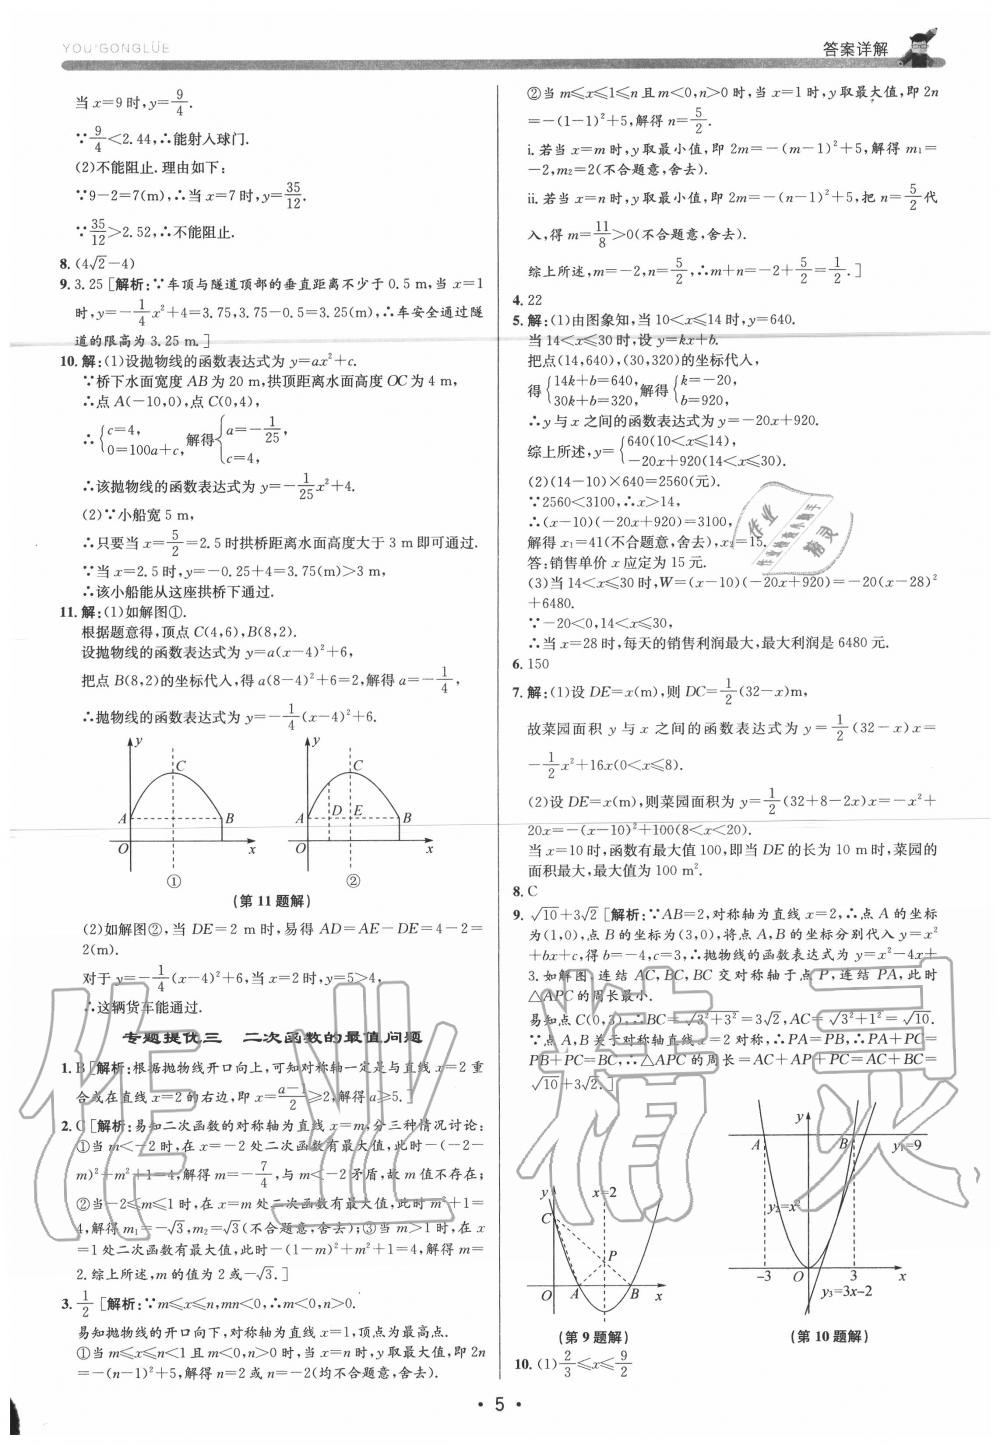 YOU'GONGLÜE
答案详解
当 x=9 时,y=9/4.
∵9/4<2.44,∴能射入球门.
(2)不能阻止.理由如下:
∵9-2=7(m),∴当 x=7 时,y=35/12.
∵35/12>2.52,∴不能阻止.
8.(4√2-4)
9.3.25 [解析:∵车顶与隧道顶部的垂直距离不少于 0.5 m,当 x=1
时,y=-1/4x²+4=3.75,3.75-0.5=3.25(m),∴车安全通过隧
道的限高为 3.25 m.]
10.解:(1)设抛物线的函数表达式为 y=ax²+c.
∵桥下水面宽度 AB 为 20 m,拱顶距离水面高度 OC 为 4 m,
∴点 A(-10,0),点 C(0,4),
∴{c=4, 0=100a+c, 解得{a=-1/25, c=4,
∴该抛物线的函数表达式为 y=-1/25x²+4.
(2)∵小船宽 5 m,
∴只要当 x=5/2=2.5 时拱桥距离水面高度大于 3 m 即可通过.
∵当 x=2.5 时,y=-0.25+4=3.75(m)>3 m,
∴该小船能从这座拱桥下通过.
11.解:(1)如解图①.
根据题意得,顶点 C(4,6),B(8,2).
设抛物线的函数表达式为 y=a(x-4)²+6,
把点 B(8,2)的坐标代入,得 a(8-4)²+6=2,解得 a=-1/4,
∴抛物线的函数表达式为 y=-1/4(x-4)²+6.
y C A B O x ①
y C A D E B O x ②
(第 11 题解)
(2)如解图②,当 DE=2 m 时,易得 AD=AE-DE=4-2=
2(m).
对于 y=-1/4(x-4)²+6,当 x=2 时,y=5>4,
∴这辆货车能通过.
专题提优三 二次函数的最值问题
1.B [解析:根据抛物线开口向上,可知对称轴一定是与直线 x=2 重
合或在直线 x=2 的右边,即 x=(a-1)/2≥2,解得 a≥5.]
2.C [解析:易知二次函数的对称轴为直线 x=m,分三种情况讨论:
①当 m<-2 时,在 x=-2 处二次函数有最大值,此时-(-2-
m)²+m²+1=4,解得 m=-7/4,与 m<-2 矛盾,故 m 值不存在;
②当-2≤m≤1 时,在 x=m 处二次函数有最大值,此时 m²+1=
4,解得 m₁=-√3,m₂=√3(不合题意,舍去);③当 m>1 时,在 x
=1 处二次函数有最大值,此时-(1-m)²+m²+1=4,解得 m=
2.综上所述,m 的值为 2 或-√3.]
3.1/2 [解析:∵m≤x≤n,mn<0,∴m<0,n>0.
易知抛物线的开口向下,对称轴为直线 x=1,顶点为最高点.
①当 m≤x≤n<1 且 m<0,n>0 时,当 x=n 时,y 取最大值,即 2n
=-(n-1)²+5,解得 n=2 或 n=-2(均不合题意,舍去).
②当 m≤x≤1≤n 且 m<0,n>0 时,当 x=1 时,y 取最大值,即 2n
=-(1-1)²+5,解得 n=5/2.
i.若当 x=m 时,y 取最小值,即 2m=-(m-1)²+5,解得 m₁=
-2,m₂=2(不合题意,舍去).
ii.若当 x=n 时,y 取最小值,即 2m=-(n-1)²+5,把 n=5/2 代
入,得 m=11/8>0(不合题意,舍去).
综上所述,m=-2,n=5/2,∴m+n=-2+5/2=1/2.]
4.22
5.解:(1)由图象知,当 10<x≤14 时,y=640.
当 14<x≤30 时,设 y=kx+b.
把点(14,640),(30,320)的坐标代入,
得{14k+b=640, 30k+b=320, 解得{k=-20, b=920,
∴y 与 x 之间的函数表达式为 y=-20x+920.
综上所述,y={640(10<x≤14), -20x+920(14<x≤30).
(2)(14-10)×640=2560(元).
∵2560<3100,∴x>14,
∴(x-10)(-20x+920)=3100,
解得 x₁=41(不合题意,舍去),x₂=15.
答:销售单价 x 应定为 15 元.
(3)当 14<x≤30 时,W=(x-10)(-20x+920)=-20(x-28)²
+6480.
∵-20<0,14<x≤30,
∴当 x=28 时,每天的销售利润最大,最大利润是 6480 元.
6.150
7.解:(1)设 DE=x(m),则 DC=1/2(32-x)m,
故菜园面积 y 与 x 之间的函数表达式为 y=1/2(32-x)x=
-1/2x²+16x(0<x≤8).
(2)设 DE=x(m),则菜园面积为 y=1/2(32+8-2x)x=-x²+
20x=-(x-10)²+100(8<x<20).
当 x=10 时,函数有最大值 100,即当 DE 的长为 10 m 时,菜园的
面积最大,最大值为 100 m².
8.C
9.√10+3√2 [解析:∵AB=2,对称轴为直线 x=2,∴点 A 的坐标
为(1,0),点 B 的坐标为(3,0),将点 A,B 的坐标分别代入 y=x²
+bx+c,得 b=-4,c=3,∴抛物线的函数表达式为 y=x²-4x+
3.如解图,连结 AC,BC,BC 交对称轴于点 P,连结 PA,此时
△APC 的周长最小.
易知点 C(0,3),∴BC=√(3²+3²)=3√2,AC=√(3²+1²)=√10.
∵点 A,B 关于对称轴直线 x=2 对称,∴PA=PB,∴PA+PC=
PB+PC=BC,∴△APC 的周长=AC+AP+PC=AC+BC=
√10+3√2.]
y x=2 C P O A B x
(第 9 题解)
y A B y₁=9 y₂=x² -3 O 3 x y₃=3x-2
(第 10 题解)
10.(1)2/3≤x≤9/2
作业精灵
作业
作业检查小助手
精灵
• 5 •